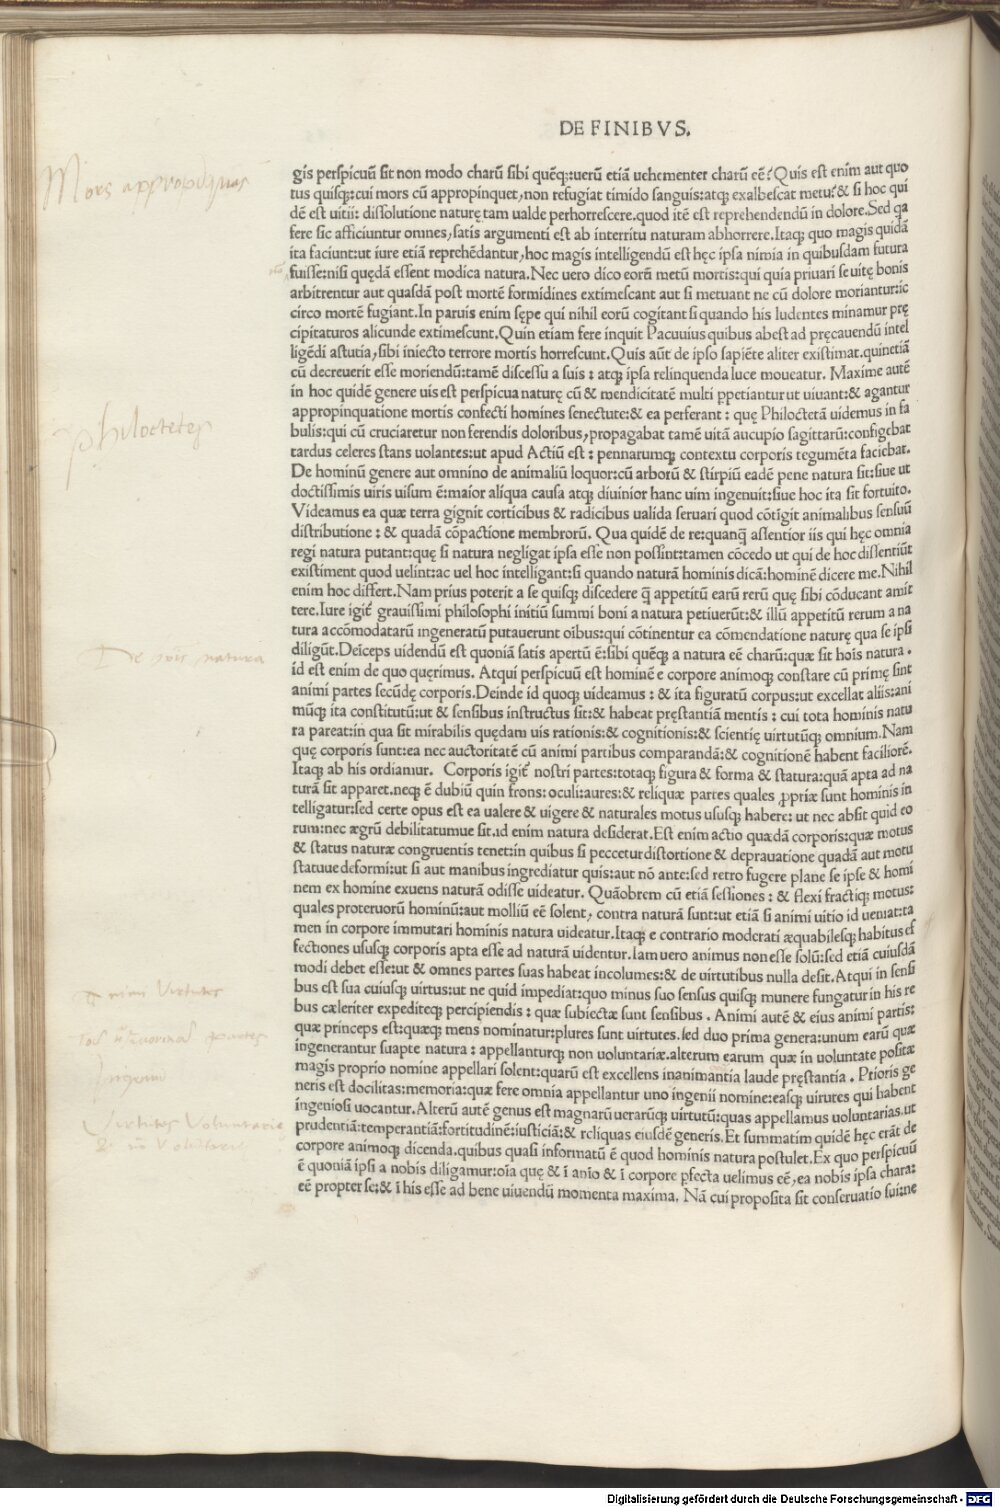 DE FINIBVS.
Mors appropīquās
gis perspicuū sit non modo charū sibi quēq;:uerū etiā uehementer charū eē? Quis est enim aut quo
tus quisq;:cui mors cū appropinquet,non refugiat timido sanguis:atq; exalbescat metu?& si hoc qui
dē est uitii: dissolutione naturę tam ualde perhorrescere.quod itē est reprehendendū in dolore.Sed qa
fere sic afficiuntur omnes,satis argumenti est ab interritu naturam abhorrere.Itaq; quo magis quidā
ita faciunt:ut iure etiā reprehēdantur,hoc magis intelligendū est hęc ipsa nimia in quibusdam futura
fuisse:nisi quędā essent modica natura.Nec uero dico eorū metū mortis:qui quia priuari se uitę bonis
arbitrentur aut quasdā post mortē formidines extimescant aut si metuant ne cū dolore moriantur:ic
circo mortē fugiant.In paruis enim sępe qui nihil eorū cogitant si quando his ludentes minamur prę
cipitaturos alicunde extimescunt.Quin etiam fere inquit Pacuuius quibus abest ad pręcauendū intel
ligēdi astutia,sibi iniecto terrore mortis horrescunt.Quis aūt de ipso sapiēte aliter existimat.quinetiā
cū decreuerit esse moriendū:tamē discessu a suis: atq; ipsa relinquenda luce moueatur. Maxime autē
in hoc quidē genere uis est perspicua naturę cū & mendicitatē multi ꝑpetiantur ut uiuant:& agantur
appropinquatione mortis confecti homines senectute:& ea perferant: quę Philoctetā uidemus in fa
bulis:qui cū cruciaretur non ferendis doloribus,propagabat tamē uitā aucupio sagittarū:configebat
Philoctetes
tardus celeres stans uolantes:ut apud Actiū est: pennarumq; contextu corporis tegumēta faciebat.
De hominū genere aut omnino de animaliū loquor:cū arborū & stirpiū eadē pene natura sit:siue ut
doctissimis uiris uisum ē:maior aliqua causa atq; diuinior hanc uim ingenuit:siue hoc ita sit fortuito.
Videamus ea quæ terra gignit corticibus & radicibus ualida seruari quod cōtīgit animalibus sensuū
distributione: & quadā cōpactione membrorū. Qua quidē de re:quanq̄ assentior iis qui hęc omnia
regi natura putant:quę si natura negligat ipsa esse non possint:tamen cōcedo ut qui de hoc dissentiūt
existiment quod uelint:ac uel hoc intelligant:si quando naturā hominis dicā:hominē dicere me.Nihil
enim hoc differt.Nam prius poterit a se quisq; discedere q̄ appetitū earū rerū quę sibi cōducant amit
tere.Iure igiť grauissimi philosophi initiū summi boni a natura petiuerūt:& illū appetitū rerum a na
tura accōmodatarū ingeneratū putauerunt oībus:qui cōtinentur ea cōmendatione naturę qua se ipsi
diligūt.Deīceps uidendū est quoniā satis apertū ē:sibi quēq; a natura eē charū:quæ sit hoīs natura.
De hoīs natura
id est enim de quo quęrimus. Atqui perspicuū est hominē e corpore animoq; constare cū primę sint
animi partes secūdę corporis.Deinde id quoq; uideamus: & ita figuratū corpus:ut excellat aliis:ani
mūq; ita constitutū:ut & sensibus instructus sit:& habeat pręstantiā mentis: cui tota hominis natu
ra pareat:in qua sit mirabilis quędam uis rationis:& cognitionis:& scientię uirtutūq; omnium.Nam
quę corporis sunt:ea nec auctoritatē cū animi partibus comparandā:& cognitionē habent faciliorē.
Itaq; ab his ordiamur. Corporis igiť nostri partes:totaq; figura & forma & statura:quā apta ad na
turā sit apparet.neq; ē dubiū quin frons: oculi:aures:& reliquæ partes quales ꝓpriæ sunt hominis in
telligatur:sed certe opus est ea ualere & uigere & naturales motus ususq; habere: ut nec absit quid eo
rum:nec ægrū debilitatumue sit.id enim natura desiderat.Est enim actio quædā corporis:quæ motus
& status naturæ congruentis tenet:in quibus si peccetur distortione & deprauatione quadā aut motu
statuue deformi:ut si aut manibus ingrediatur quis:aut nō ante:sed retro fugere plane se ipse & homi
nem ex homine exuens naturā odisse uideatur. Quāobrem cū etiā sessiones: & flexi fractiq; motus:
quales proteruorū hominū:aut molliū eē solent, contra naturā sunt:ut etiā si animi uitio id ueniat:ta
men in corpore immutari hominis natura uideatur.Itaq; e contrario moderati æquabilesq; habitus ef
fectiones ususq; corporis apta esse ad naturā uidentur.Iam uero animus non esse solū:sed etiā cuiusdā
modi debet esse:ut & omnes partes suas habeat incolumes:& de uirtutibus nulla desit.Atqui in sensi
bus est sua cuiusq; uirtus:ut ne quid impediat:quo minus suo sensus quisq; munere fungatur in his re
Animi Virtutes
bus cæleriter expediteq; percipiendis: quæ subiectæ sunt sensibus. Animi autē & eius animi partis:
quæ princeps est:quæq; mens nominatur:plures sunt uirtutes.sed duo prima genera:unum earū quæ
ingenerantur suapte natura: appellanturq; non uoluntariæ.alterum earum quæ in uoluntate positæ
magis proprio nomine appellari solent:quarū est excellens inanimantia laude pręstantia. Prioris ge
Ingeniū
neris est docilitas:memoria:quæ fere omnia appellantur uno ingenii nomine:easq; uirutes qui habent
ingeniosi uocantur.Alterū autē genus est magnarū uerarūq; uirtutū:quas appellamus uoluntarias.ut
Virtutes Voluntarie
prudentiā:temperantiā:fortitudinē:iusticiā:& reliquas eiusdē generis.Et summatim quidē hęc erāt de
& nō Volūtarie
corpore animoq; dicenda.quibus quasi informatū ē quod hominis natura postulet.Ex quo perspicuū
ē quoniā ipsi a nobis diligamur:oīa quę & ī anīo & ī corpore ꝑfecta uelimus eē,ea nobis ipsa chara:
eē propter se:& ī his esse ad bene uiuendū momenta maxima. Nā cui proposita sit conseruatio sui:ne
Digitalisierung gefördert durch die Deutsche Forschungsgemeinschaft - DFG